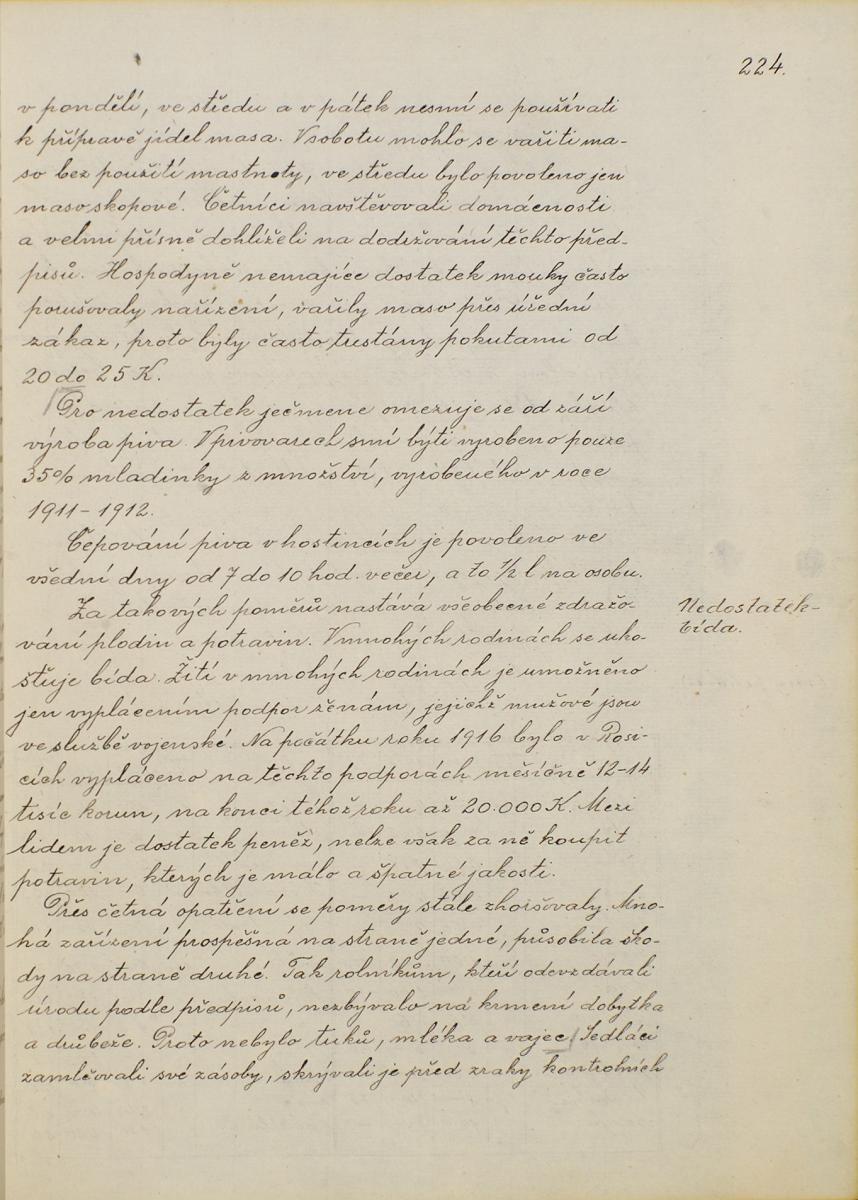 224.
v pondělí, ve středu a v pátek nesmí se používati
k přípravě jídel masa. V sobotu mohlo se vařiti ma-
so bez použití mastnoty, ve středu bylo povoleno jen
maso skopové. Četníci navštěvovali domácnosti
a velmi přísně dohlíželi na dodržování těchto před-
pisů. Hospodyně nemajíce dostatek mouky často
porušovaly nařízení, vařily maso přes úřední
zákaz, proto byly často trestány pokutami od
20 do 25 K.
Pro nedostatek ječmene omezuje se od září
výroba piva. V pivovarech smí býti vyrobeno pouze
35% mladinky z množství, vyrobeného v roce
1911 - 1912.
Čepování piva v hostincích je povoleno ve
všední dny od 7 do 10 hod. večer, a to 1/2 l na osobu.
Za takových poměrů nastává všeobecné zdražo-
vání plodin a potravin. V mnohých rodinách se uho-
šťuje bída. Žití v mnohých rodinách je umožněno
jen vyplácením podpor ženám, jejichž mužové jsou
ve službě vojenské. Na počátku roku 1916 bylo v Rosi-
cích vypláceno na těchto podporách měsíčně 12-14
tisíc korun, na konci téhož roku až 20.000 K. Mezi
lidem je dostatek peněz, nelze však za ně koupit
potravin, kterých je málo a špatné jakosti.
Přes četná opatření se poměry stále zhoršovaly. Mno-
há zařízení prospěšná na straně jedné, působila ško-
dy na straně druhé. Tak rolníkům, kteří odevzdávali
úrodu podle předpisů, nezbývalo na krmení dobytka
a drůbeže. Proto nebylo tuků, mléka a vajec. Sedláci
zamlčovali své zásoby, skrývali je před zraky kontrolních
Nedostatek -
bída.